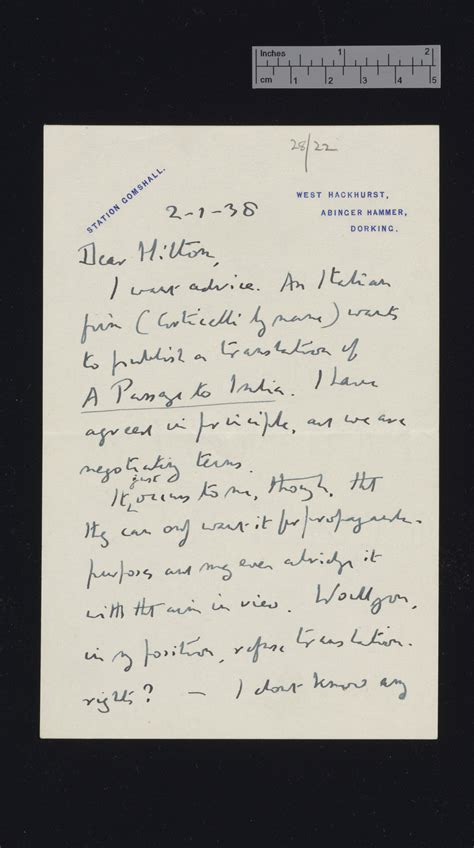 Inches 1 2
cm 1 2 3 4 5
28/22
STATION GOMSHALL.
WEST HACKHURST,
ABINGER HAMMER,
DORKING.
2-1-38
Dear Hilton,
I want advice. An Italian
firm (Corticelli by name) wants
to publish a translation of
A Passage to India. I have
agreed in principle, and we are
negotiating terms.
It just occurs to me, though, tht
they can only want it for propaganda-
purposes and may even abridge it
with tht aim in view. Would you,
in my position, refuse translation-
rights? — I dont know any